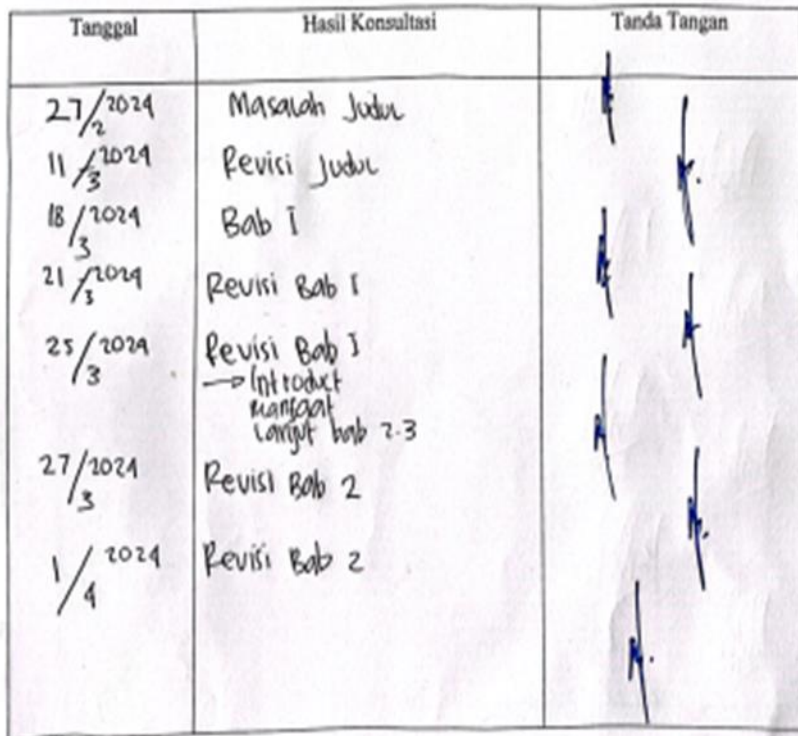 Tanggal Hasil Konsultasi Tanda Tangan
27/2 2024 Masalah Judul
11/3 2024 Revisi Judul
18/3 2024 Bab I
21/3 2024 Revisi Bab I
25/3 2024 Revisi Bab I
→ Introduct
manfaat
lanjut bab 2.3
27/3 2024 Revisi Bab 2
1/4 2024 Revisi Bab 2